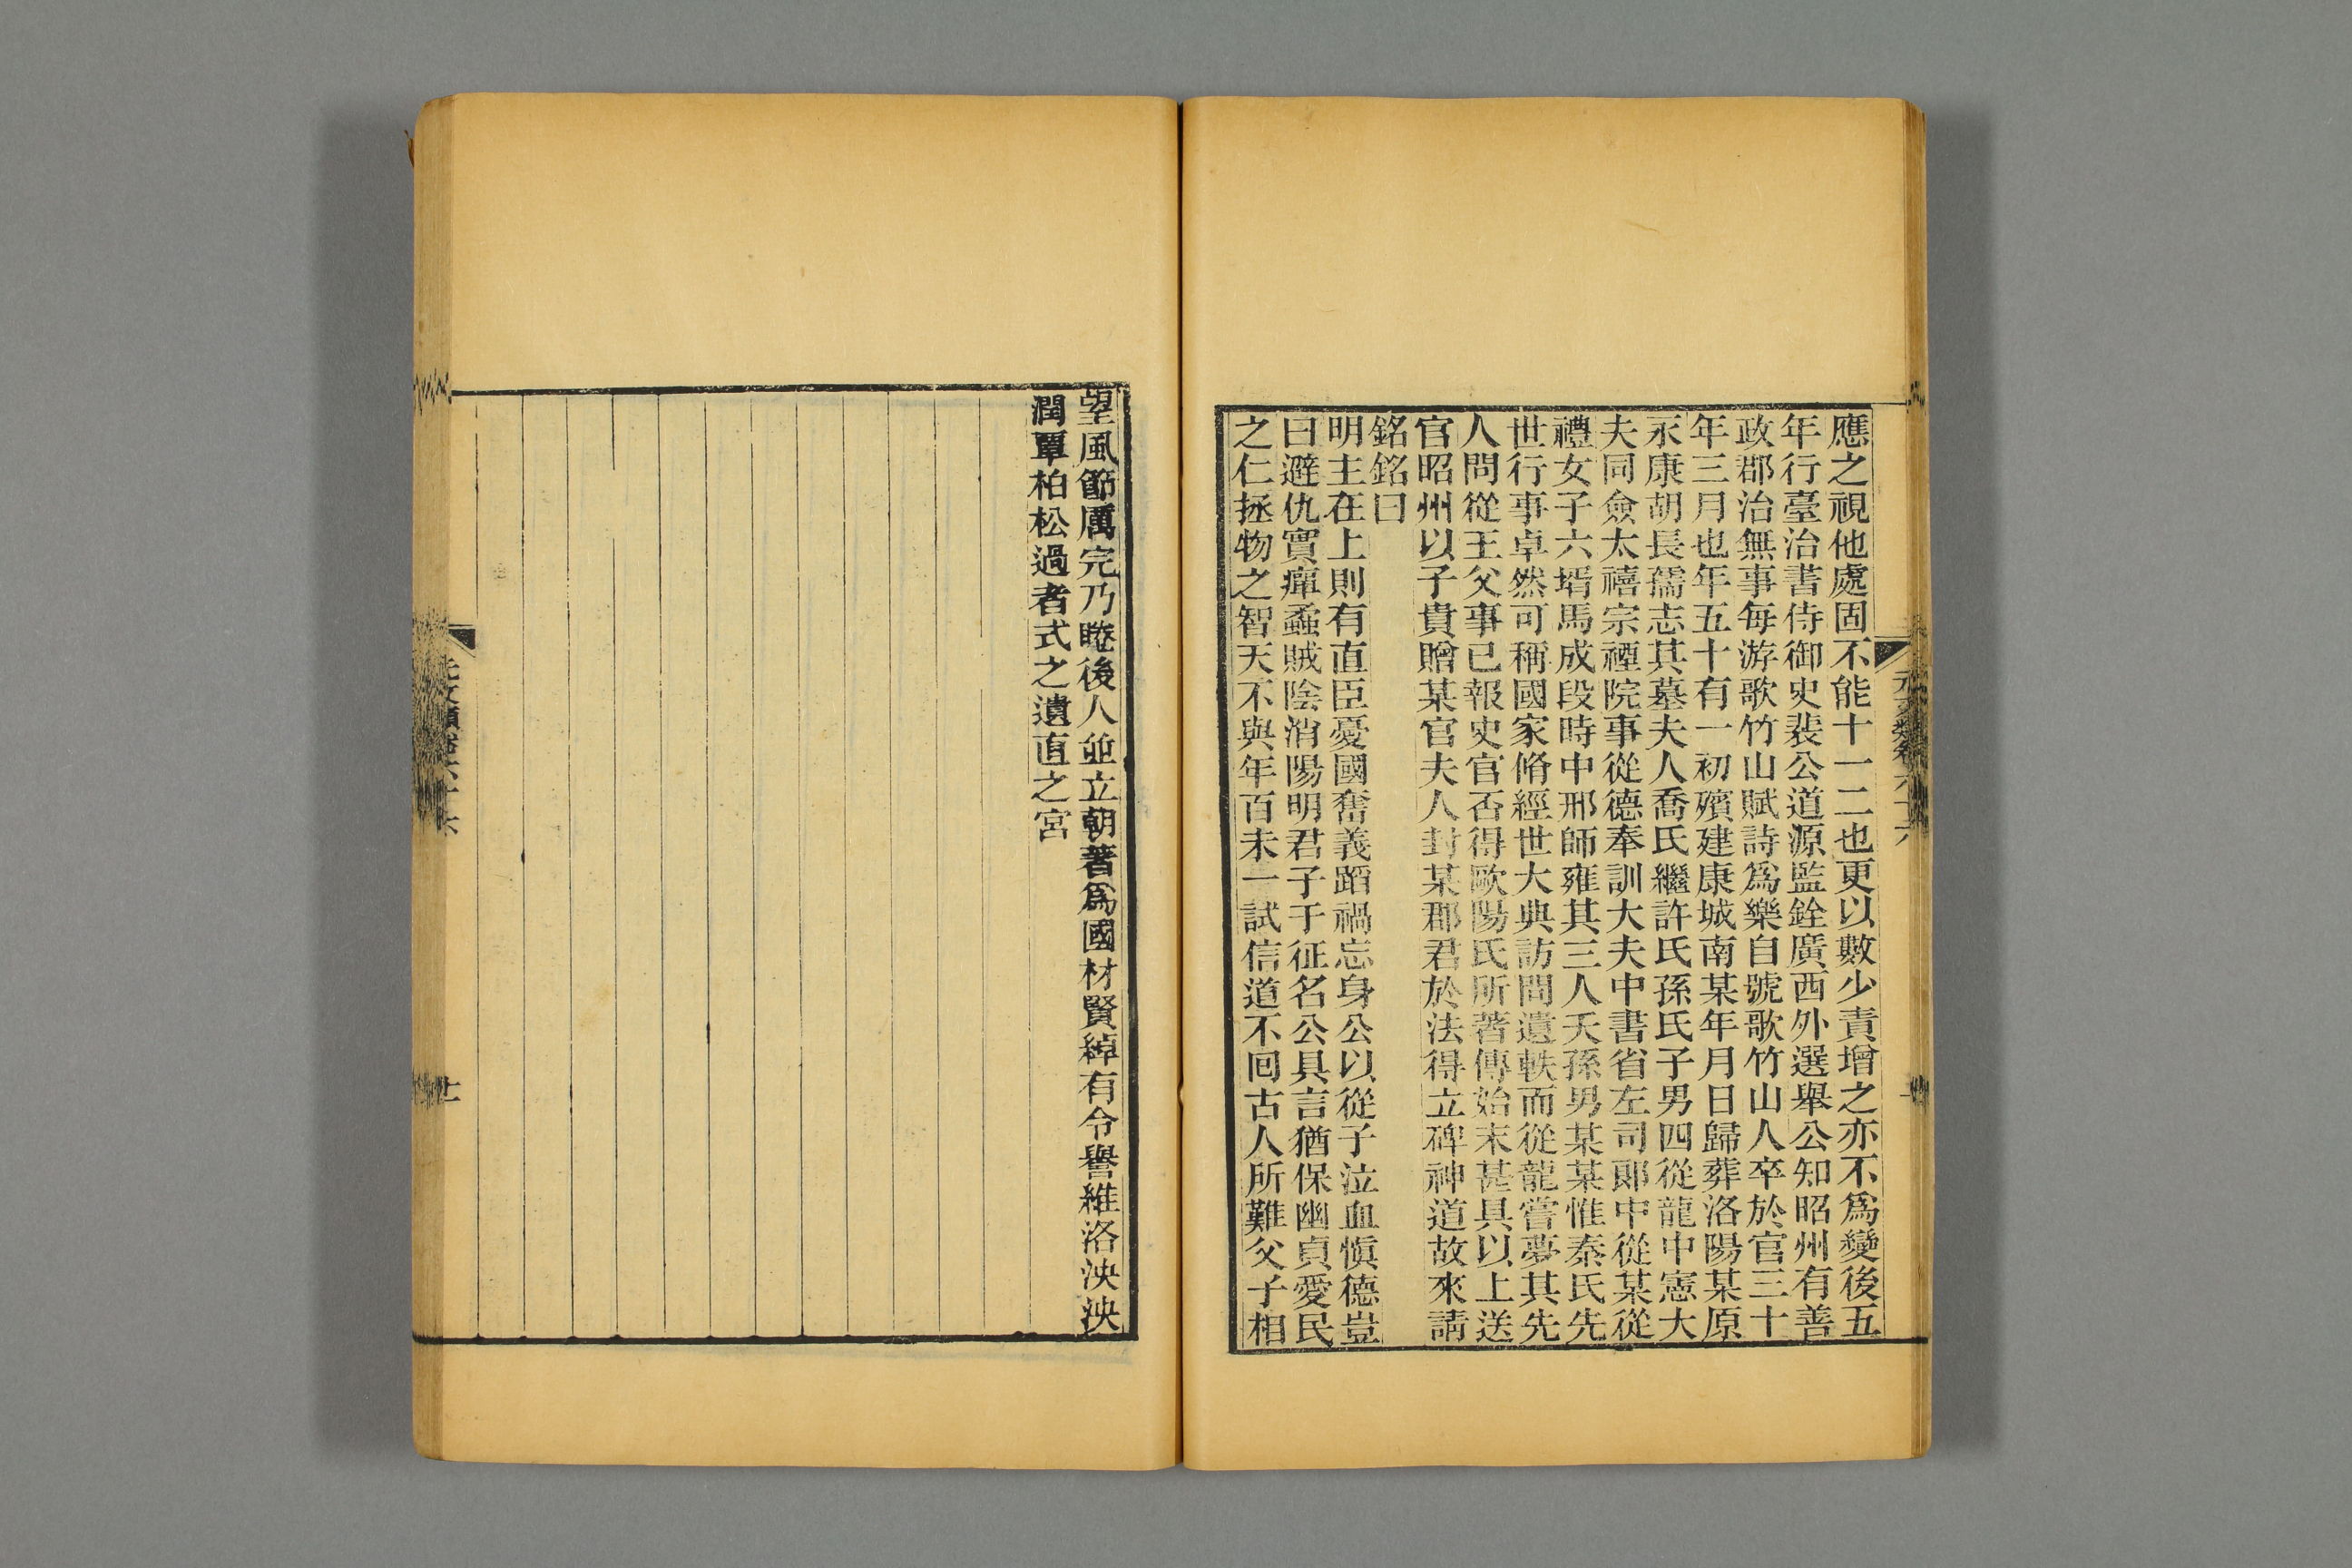 應之視他處固不能十一二也更以數少責增之亦不爲變後五
年行臺治書侍御史裴公道源監銓廣西外選舉公知昭州有善
政郡治無事每游歌竹山賦詩爲樂自號歌竹山人卒於官三十
年三月也年五十有一初殯建康城南某年月日歸葬洛陽某原
永康胡長孺志其墓夫人喬氏繼許氏孫氏子男四從龍中憲大
夫同僉太禧宗禋院事從德奉訓大夫中書省左司郞中從某從
禮女子六壻馬成段時中邢師雍其三人夭孫男某某惟泰氏先
世行事卓然可稱國家脩經世大典訪問遺軼而從龍嘗夢其先
人問從王父事已報史官否得歐陽氏所著傳始末甚具以上送
官昭州以子貴贈某官夫人封某郡君於法得立碑神道故來請
銘銘曰
明主在上則有直臣憂國奮義蹈禍忘身公以從子泣血愼德豈
曰避仇實癉蟊賊陰消陽明君子于征名公具言猶保幽貞愛民
之仁拯物之智天不與年百未一試信道不囘古人所難父子相
元文類卷六十六
望風節厲完乃睠後人竝立朝著爲國材賢綽有令譽維洛泱泱
潤覃柏松過者式之遺直之宮
元文類卷六十六